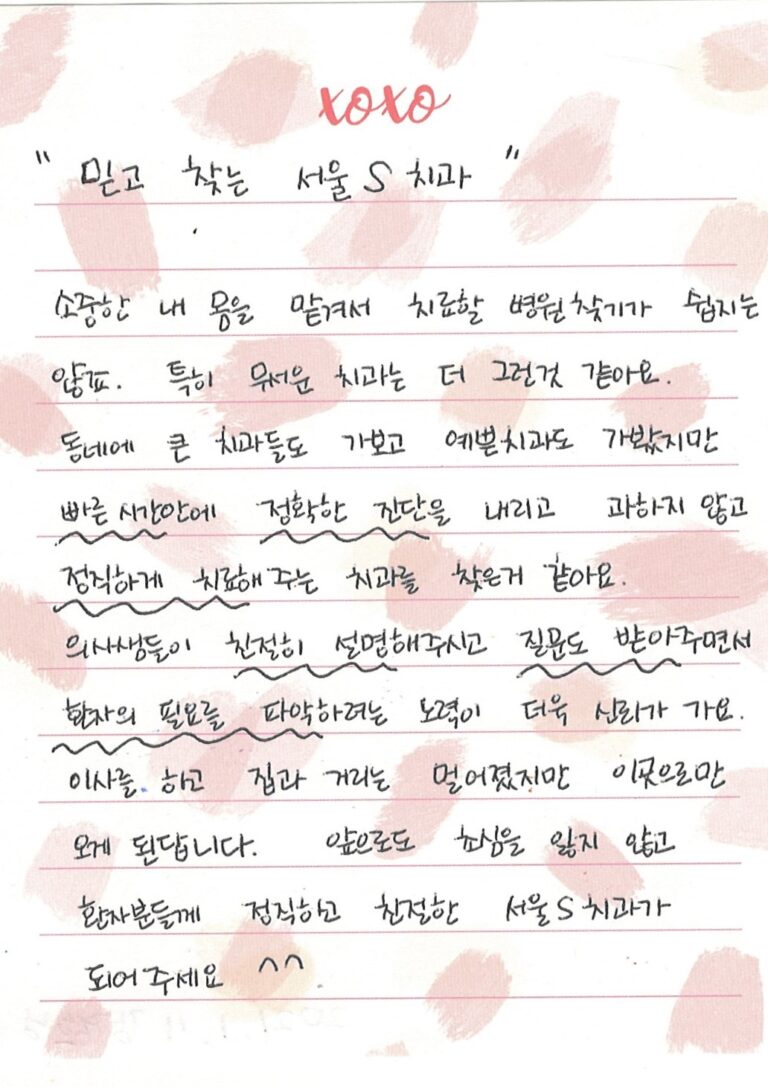 xoxo
" 믿고 찾는 서울 S 치과 "
소중한 내 몸을 맡겨서 치료할 병원찾기가 쉽지는
않죠. 특히 무서운 치과는 더 그런것 같아요.
동네에 큰 치과들도 가보고 예쁜치과도 가봤지만
빠른 시간안에 정확한 진단을 내리고 과하지 않고
정직하게 치료해주는 치과를 찾은거 같아요.
의사생들이 친절히 설명해주시고 질문도 받아주면서
환자의 필요를 파악하려는 노력이 더욱 신뢰가 가요.
이사를 하고 집과 거리는 멀어졌지만 이곳으로만
오게 된답니다. 앞으로도 초심을 잃지 않고
환자분들께 정직하고 친절한 서울 S 치과가
되어주세요 ^^